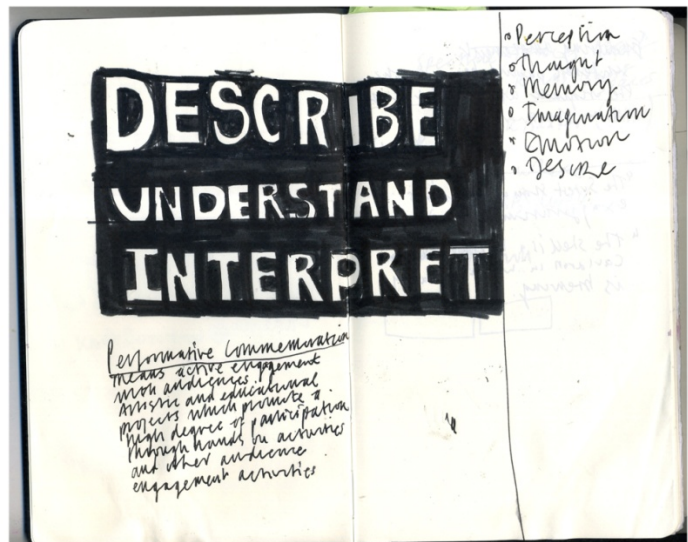 DESCRIBE
UNDERSTAND
INTERPRET
Performative Commemoration
means active engagement
with audiences.
Artistic and educational
projects which promote a
high degree of participation
through hands on activities
and other audience
engagement activities
Perception
Thought
Memory
Imagination
Emotion
Desire